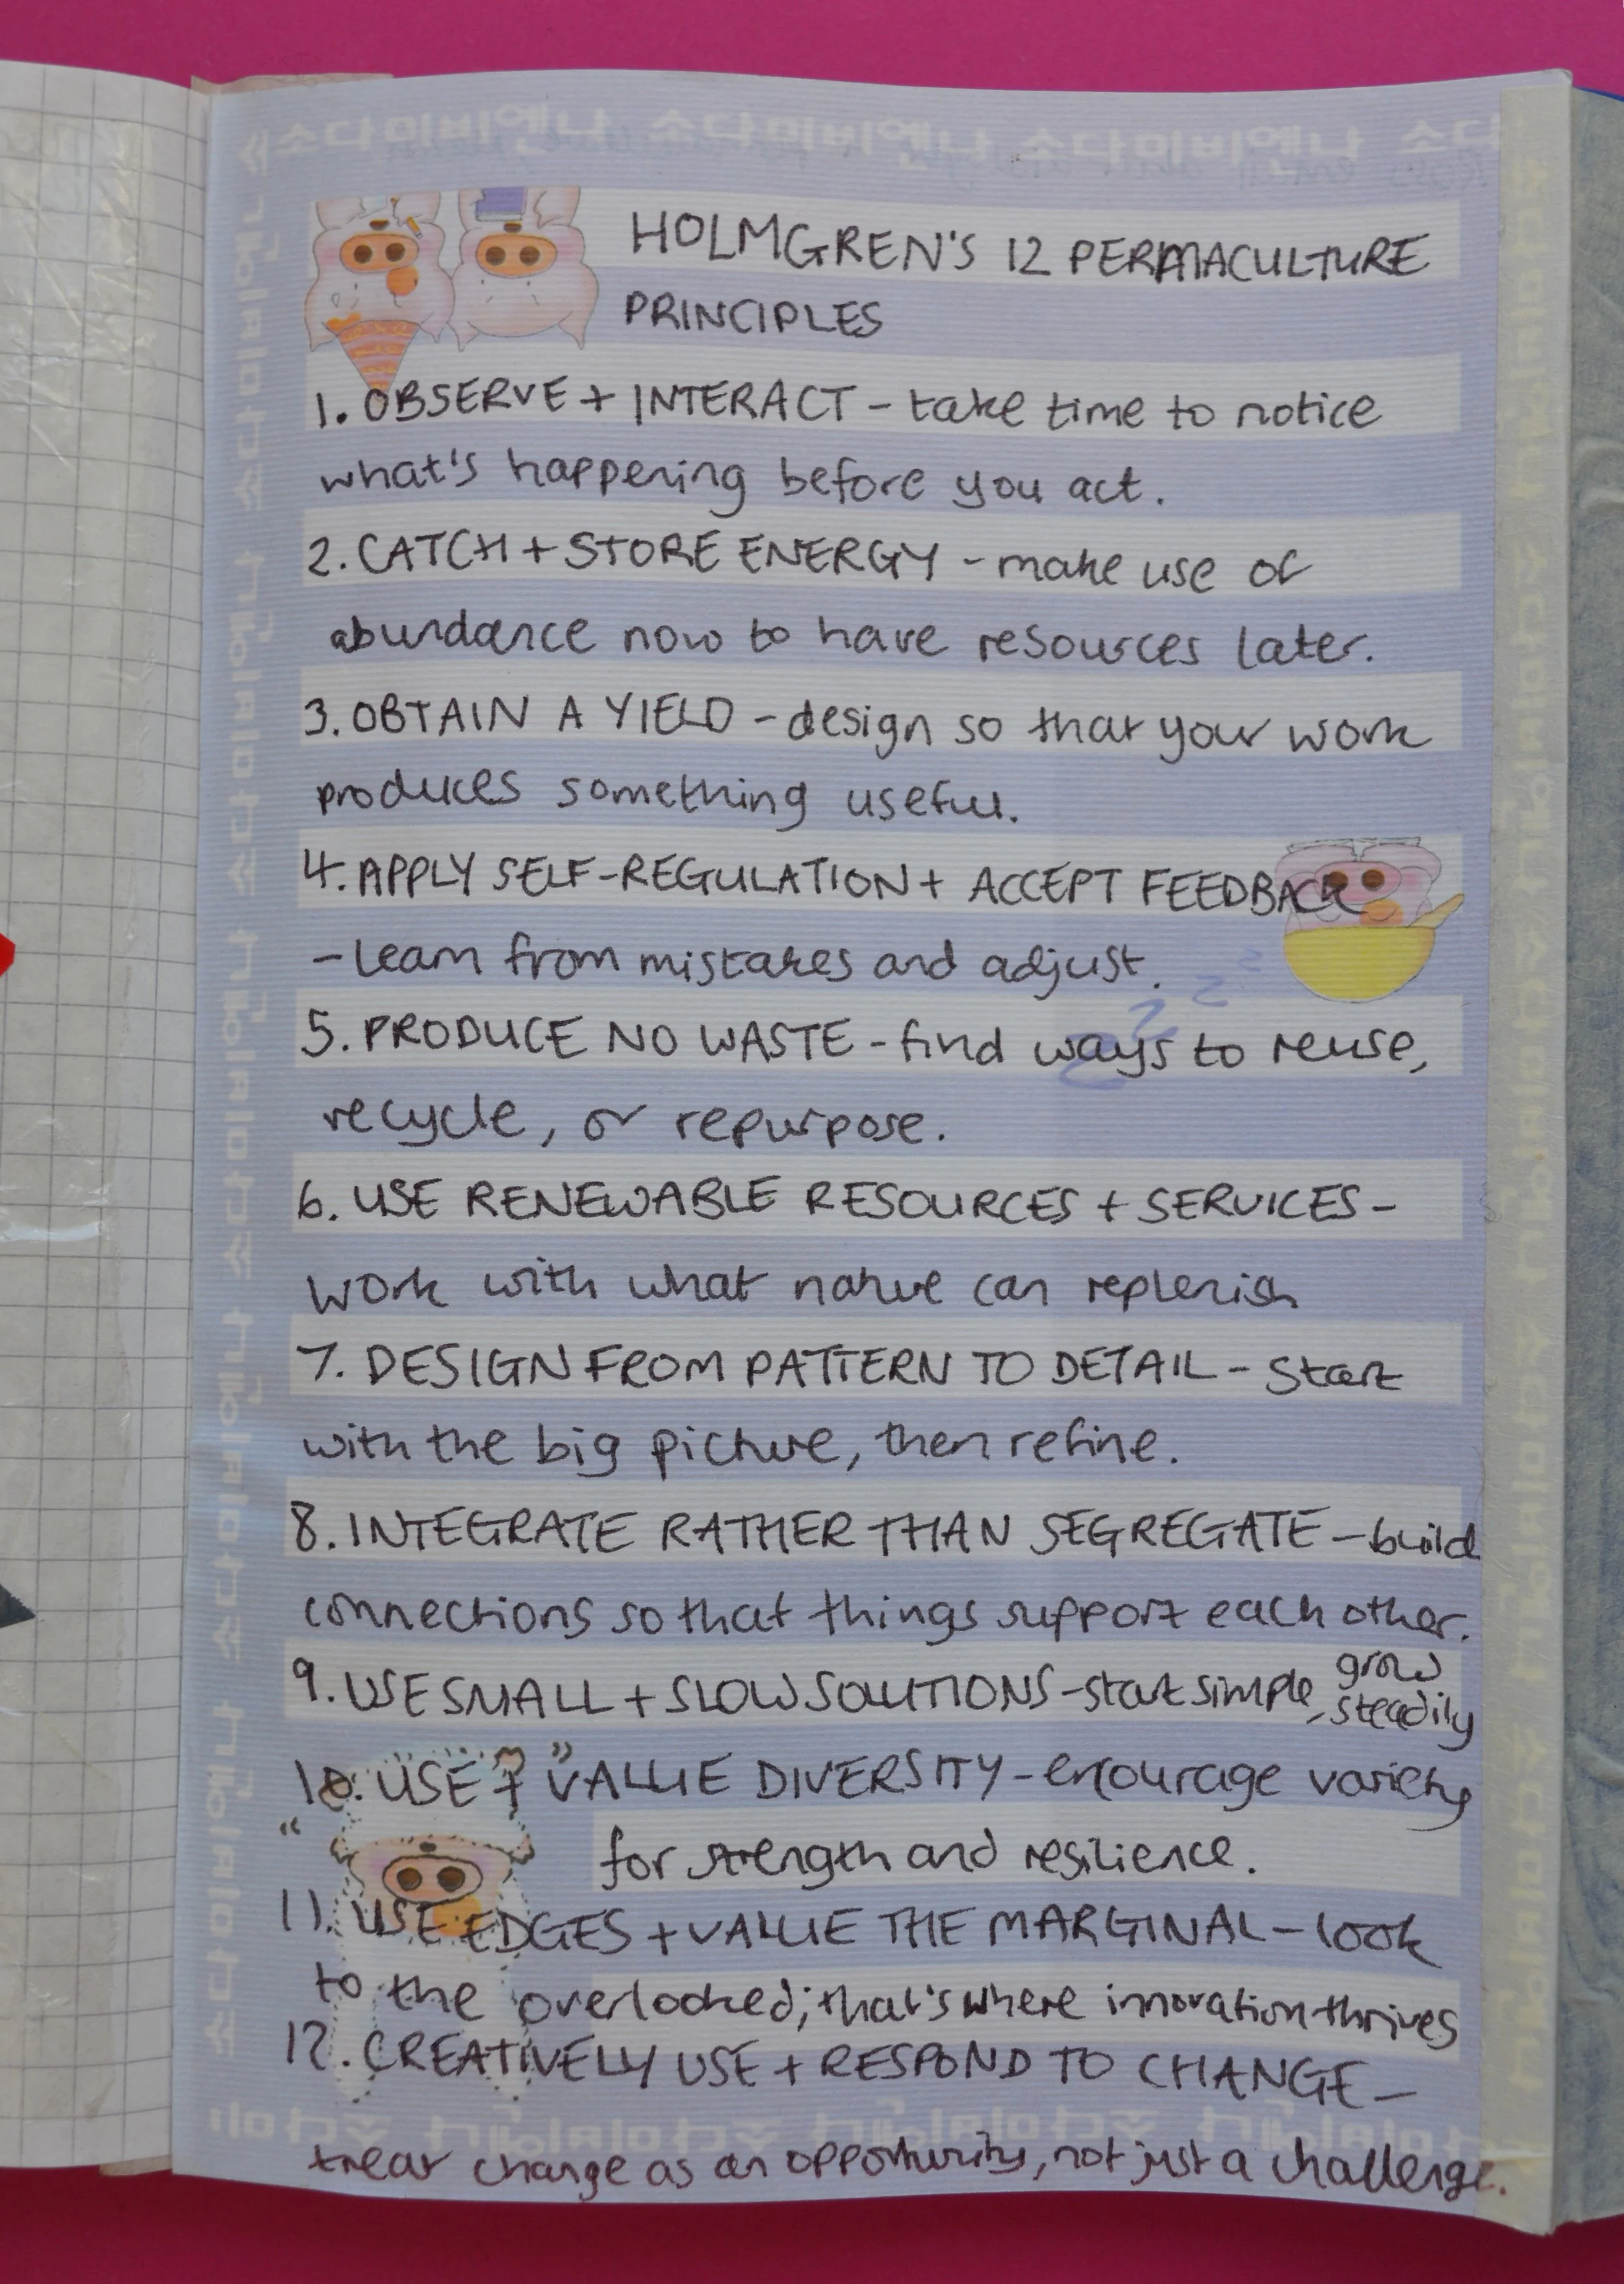 소다미비엔나 소다미비엔나 소다미비엔나 소다
HOLMGREN'S 12 PERMACULTURE
PRINCIPLES
1. OBSERVE + INTERACT - take time to notice
what's happening before you act.
2. CATCH + STORE ENERGY - make use of
abundance now to have resources later.
3. OBTAIN A YIELD - design so that your work
produces something useful.
4. APPLY SELF-REGULATION + ACCEPT FEEDBACK
- learn from mistakes and adjust.
5. PRODUCE NO WASTE - find ways to reuse,
recycle, or repurpose.
6. USE RENEWABLE RESOURCES + SERVICES -
work with what nature can replenish
7. DESIGN FROM PATTERN TO DETAIL - start
with the big picture, then refine.
8. INTEGRATE RATHER THAN SEGREGATE - build
connections so that things support each other.
9. USE SMALL + SLOW SOLUTIONS - start simple, grow
steadily
10. USE + VALUE DIVERSITY - encourage variety
for strength and resilience.
11. USE EDGES + VALUE THE MARGINAL - look
to the overlooked; that's where innovation thrives
12. CREATIVELY USE + RESPOND TO CHANGE -
treat change as an opportunity, not just a challenge.